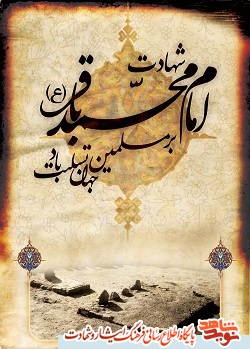 شهادت
امام محمد باقر (ع)
بر مسلمین
جهان تسلیت باد
پایگاه اطلاع رسانی فرهنگ ایثار و شهادت
نوید شاهد